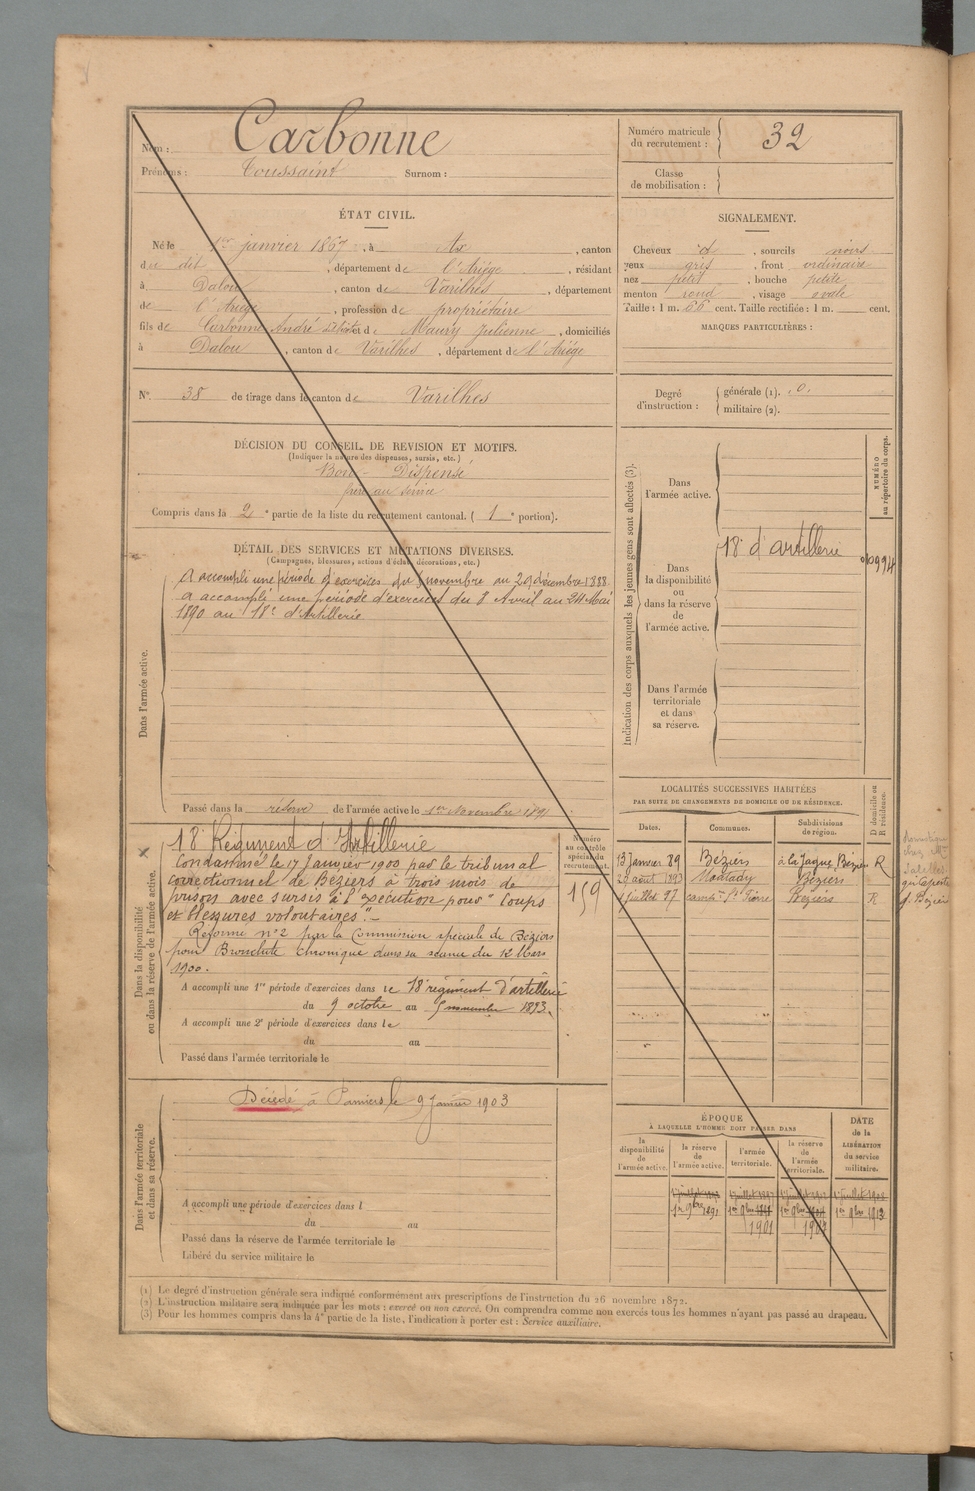 Nom : Carbonne
Prénoms : Toussaint Surnom :
Numéro matricule du recrutement : 32
Classe de mobilisation :
ÉTAT CIVIL.
Né le 1er janvier 1867, à Ax, canton
de dit, département de l'Ariège, résidant
à Dalou, canton de Varilhes, département
de l'Ariège, profession de propriétaire
fils de Carbonne André et de Maury Julienne, domiciliés
à Dalou, canton de Varilhes, département de l'Ariège
SIGNALEMENT.
Cheveux d, sourcils noirs
yeux gris, front ordinaire
nez petit, bouche petite
menton rond, visage ovale
Taille : 1 m. 66 cent. Taille rectifiée : 1 m. cent.
MARQUES PARTICULIÈRES :
N° 38 de tirage dans le canton de Varilhes
Degré d'instruction :
générale (1). 0.
militaire (2).
DÉCISION DU CONSEIL DE REVISION ET MOTIFS.
(Indiquer la nature des dispenses, sursis, etc.)
Bon - Dispensé
frère au service
Compris dans la 2e partie de la liste du recrutement cantonal. (1e portion).
DÉTAIL DES SERVICES ET MUTATIONS DIVERSES.
(Campagnes, blessures, actions d'éclat, décorations, etc.)
Dans l'armée active.
A accompli une période d'exercices du novembre au 29 décembre 1888
a accompli une période d'exercices du 8 Avril au 24 Mai
1890 au 18e d'Artillerie
Passé dans la réserve de l'armée active le 1er Novembre 1891
Indication des corps auxquels les jeunes gens sont affectés (3).
Dans l'armée active.
Dans la disponibilité ou dans la réserve de l'armée active.
18e d'artillerie
Dans l'armée territoriale et dans sa réserve.
NUMÉRO au répertoire du corps.
Dans la disponibilité ou dans la réserve de l'armée active.
18e Régiment d'Artillerie
Condamné le 17 Janvier 1900 par le tribunal
correctionnel de Béziers à trois mois de
prison avec sursis à l'exécution pour "coups
et blessures volontaires".-
Réformé n°2 par la Commission spéciale de Béziers
pour Bronchite chronique dans sa séance du 12 Mars
1900.
A accompli une 1re période d'exercices dans le 18e régiment d'artillerie
du 9 octobre au 5 novembre 1893.
A accompli une 2e période d'exercices dans le
du au
Passé dans l'armée territoriale le
Numéro au contrôle spécial du recrutement.
159
LOCALITÉS SUCCESSIVES HABITÉES
PAR SUITE DE CHANGEMENTS DE DOMICILE OU DE RÉSIDENCE.
Dates. Communes. Subdivisions de région. D domicile ou R résidence.
13 Janvier 89 Béziers Béziers R
20 août 1893 Montady Béziers
juillet 97 Béziers R
Dans l'armée territoriale et dans sa réserve.
Décédé à Pamiers le 9 Janvier 1903
A accompli une période d'exercices dans l
du au
Passé dans la réserve de l'armée territoriale le
Libéré du service militaire le
ÉPOQUE
À LAQUELLE L'HOMME DOIT PASSER DANS
la disponibilité de l'armée active.
la réserve de l'armée active.
l'armée territoriale.
la réserve de l'armée territoriale.
DATE de la LIBÉRATION du service militaire.
1er 9bre 1891
1er 9bre
1901
1er 9bre
1er 9bre 1913
(1) Le degré d'instruction générale sera indiqué conformément aux prescriptions de l'instruction du 26 novembre 1872.
(2) L'instruction militaire sera indiquée par les mots : exercé ou non exercé. On comprendra comme non exercés tous les hommes n'ayant pas passé au drapeau.
(3) Pour les hommes compris dans la 4e partie de la liste, l'indication à porter est : Service auxiliaire.